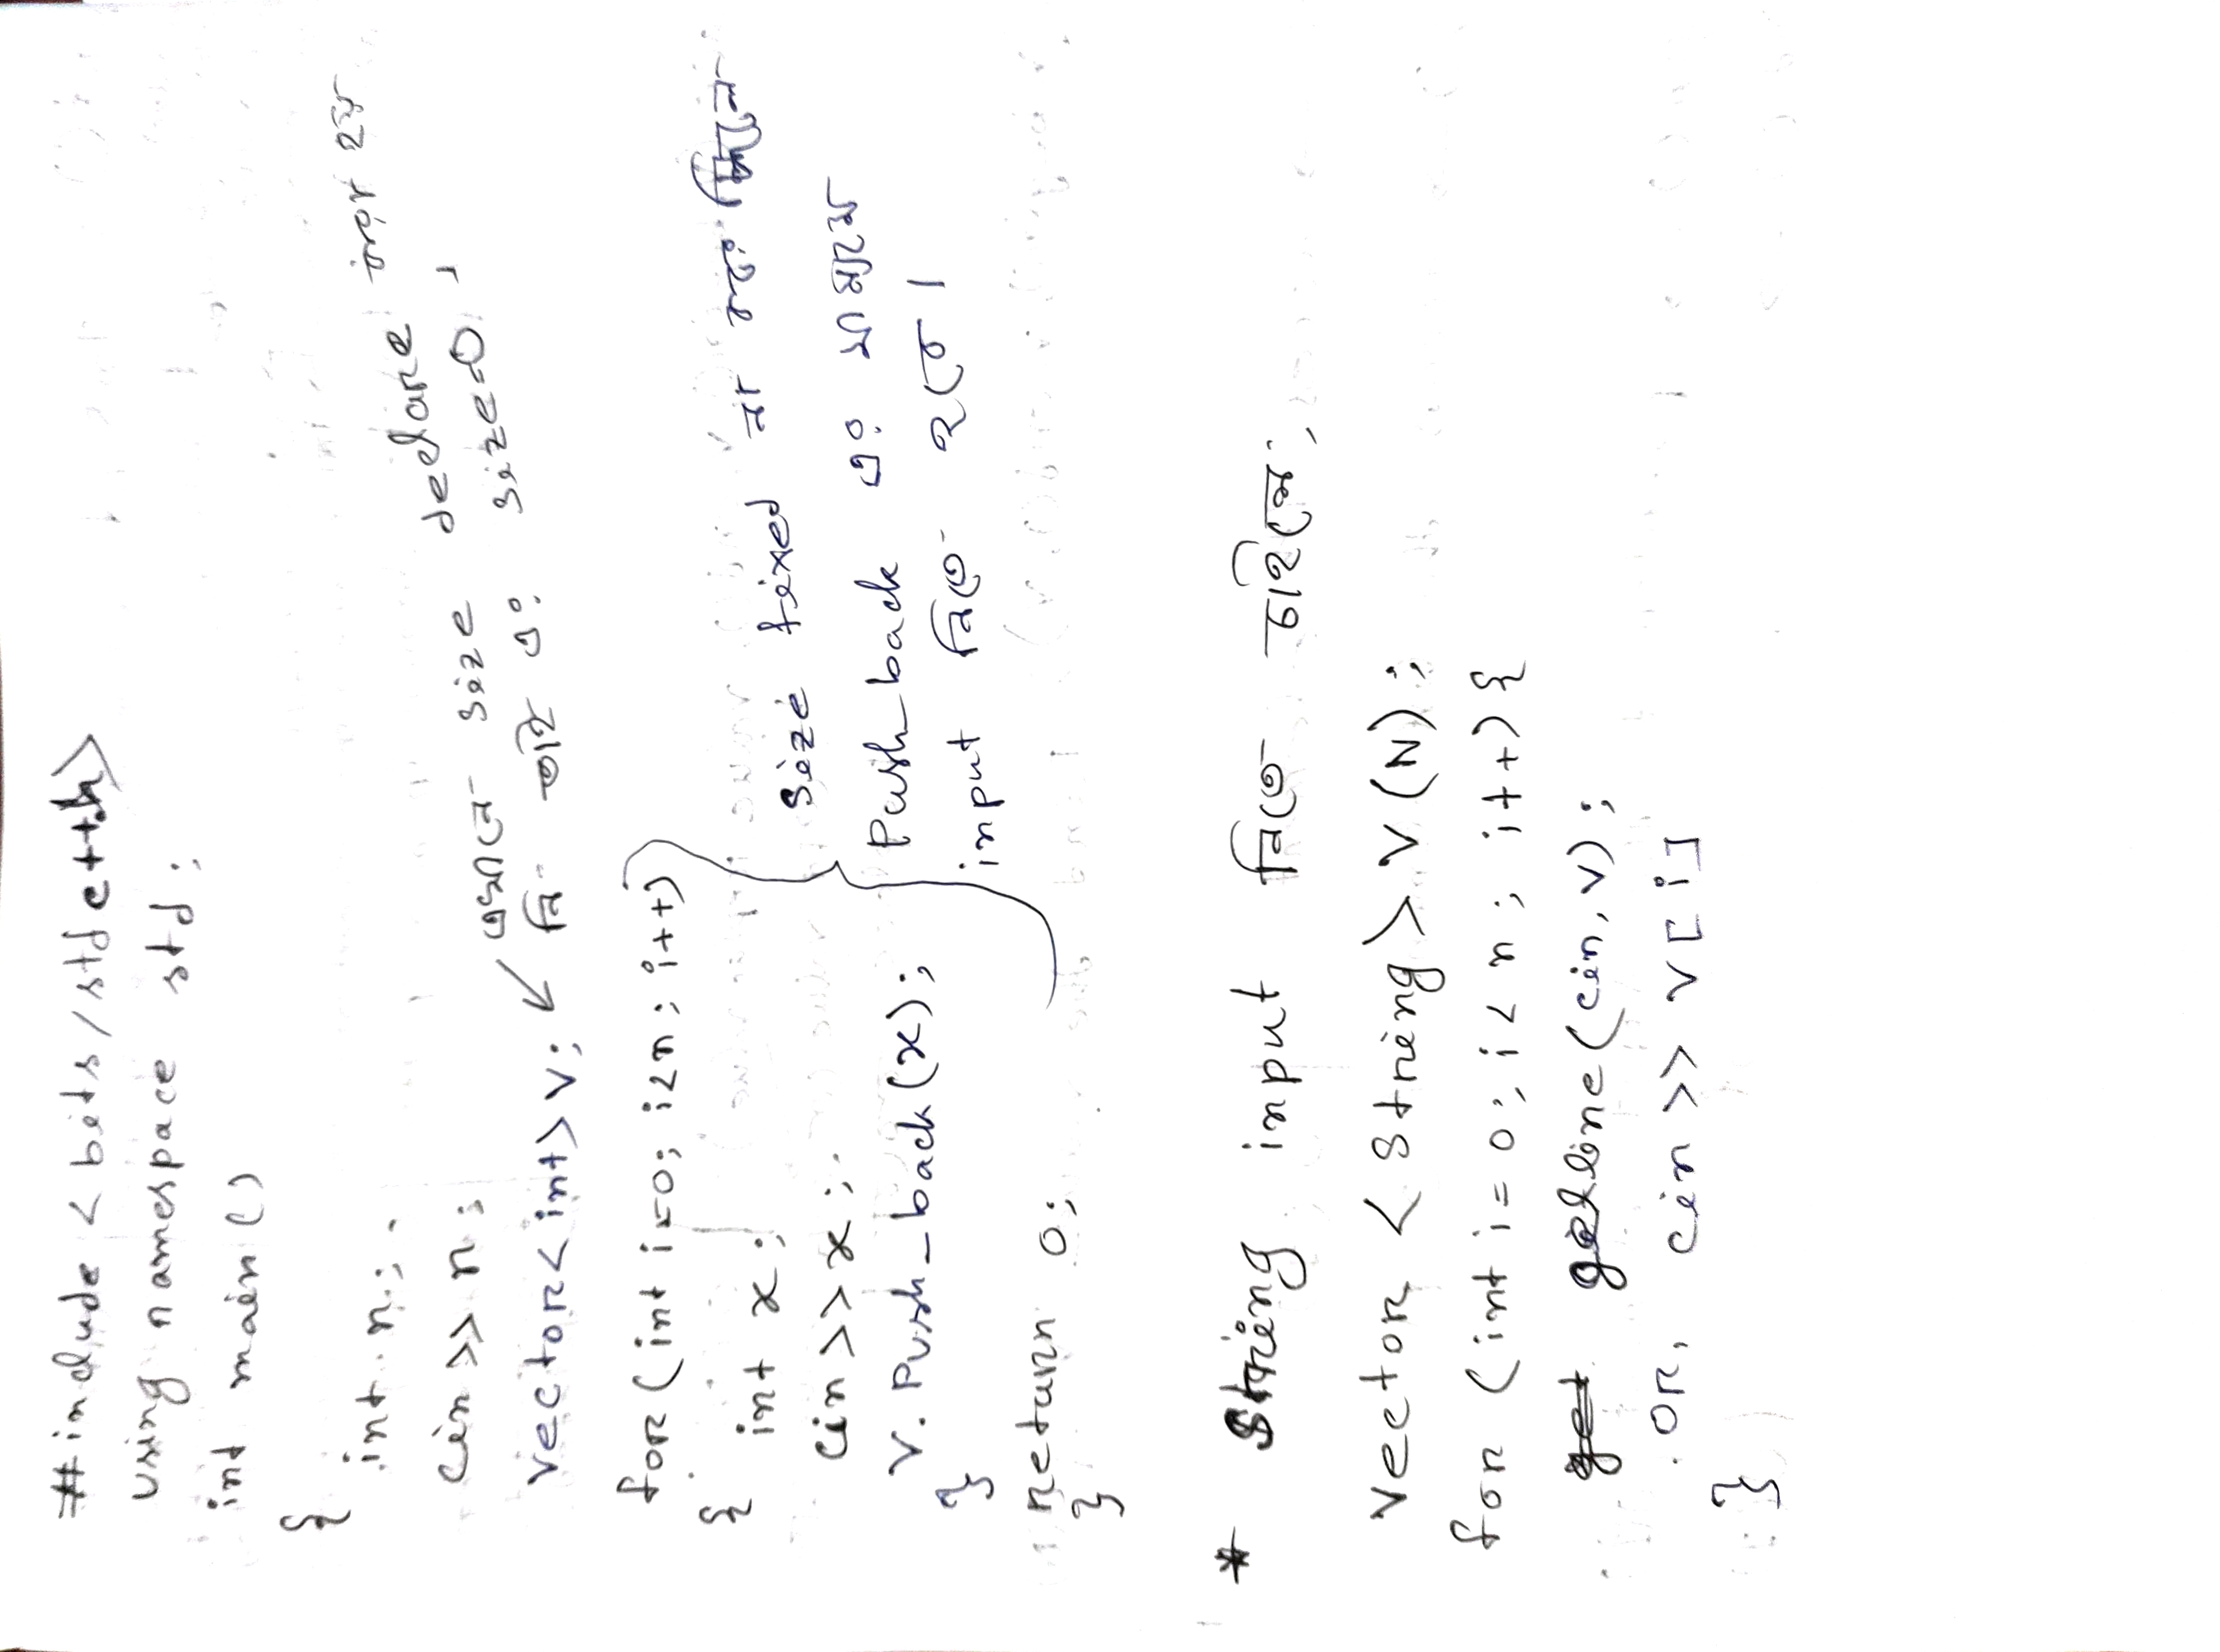 #include <bits/stdc++.h>
using namespace std;
int main()
{
int n;
cin >> n;
vector<int> v;
এখানে size declare করা হয়
নি তাই এর size=0।
for (int i=0; i<n; i++)
{ int x;
cin >> x;
v. Push_back(x);
}
return 0;
}
size fixed না করে দিলে
Push_back এর মাধ্যমে
input নিতে হবে।
* String input নিতে চাইলে,
vector <String> V(N);
for (int i = 0; i < n; i++) {
getline(cin, v);
OR, cin >> v[i]
}